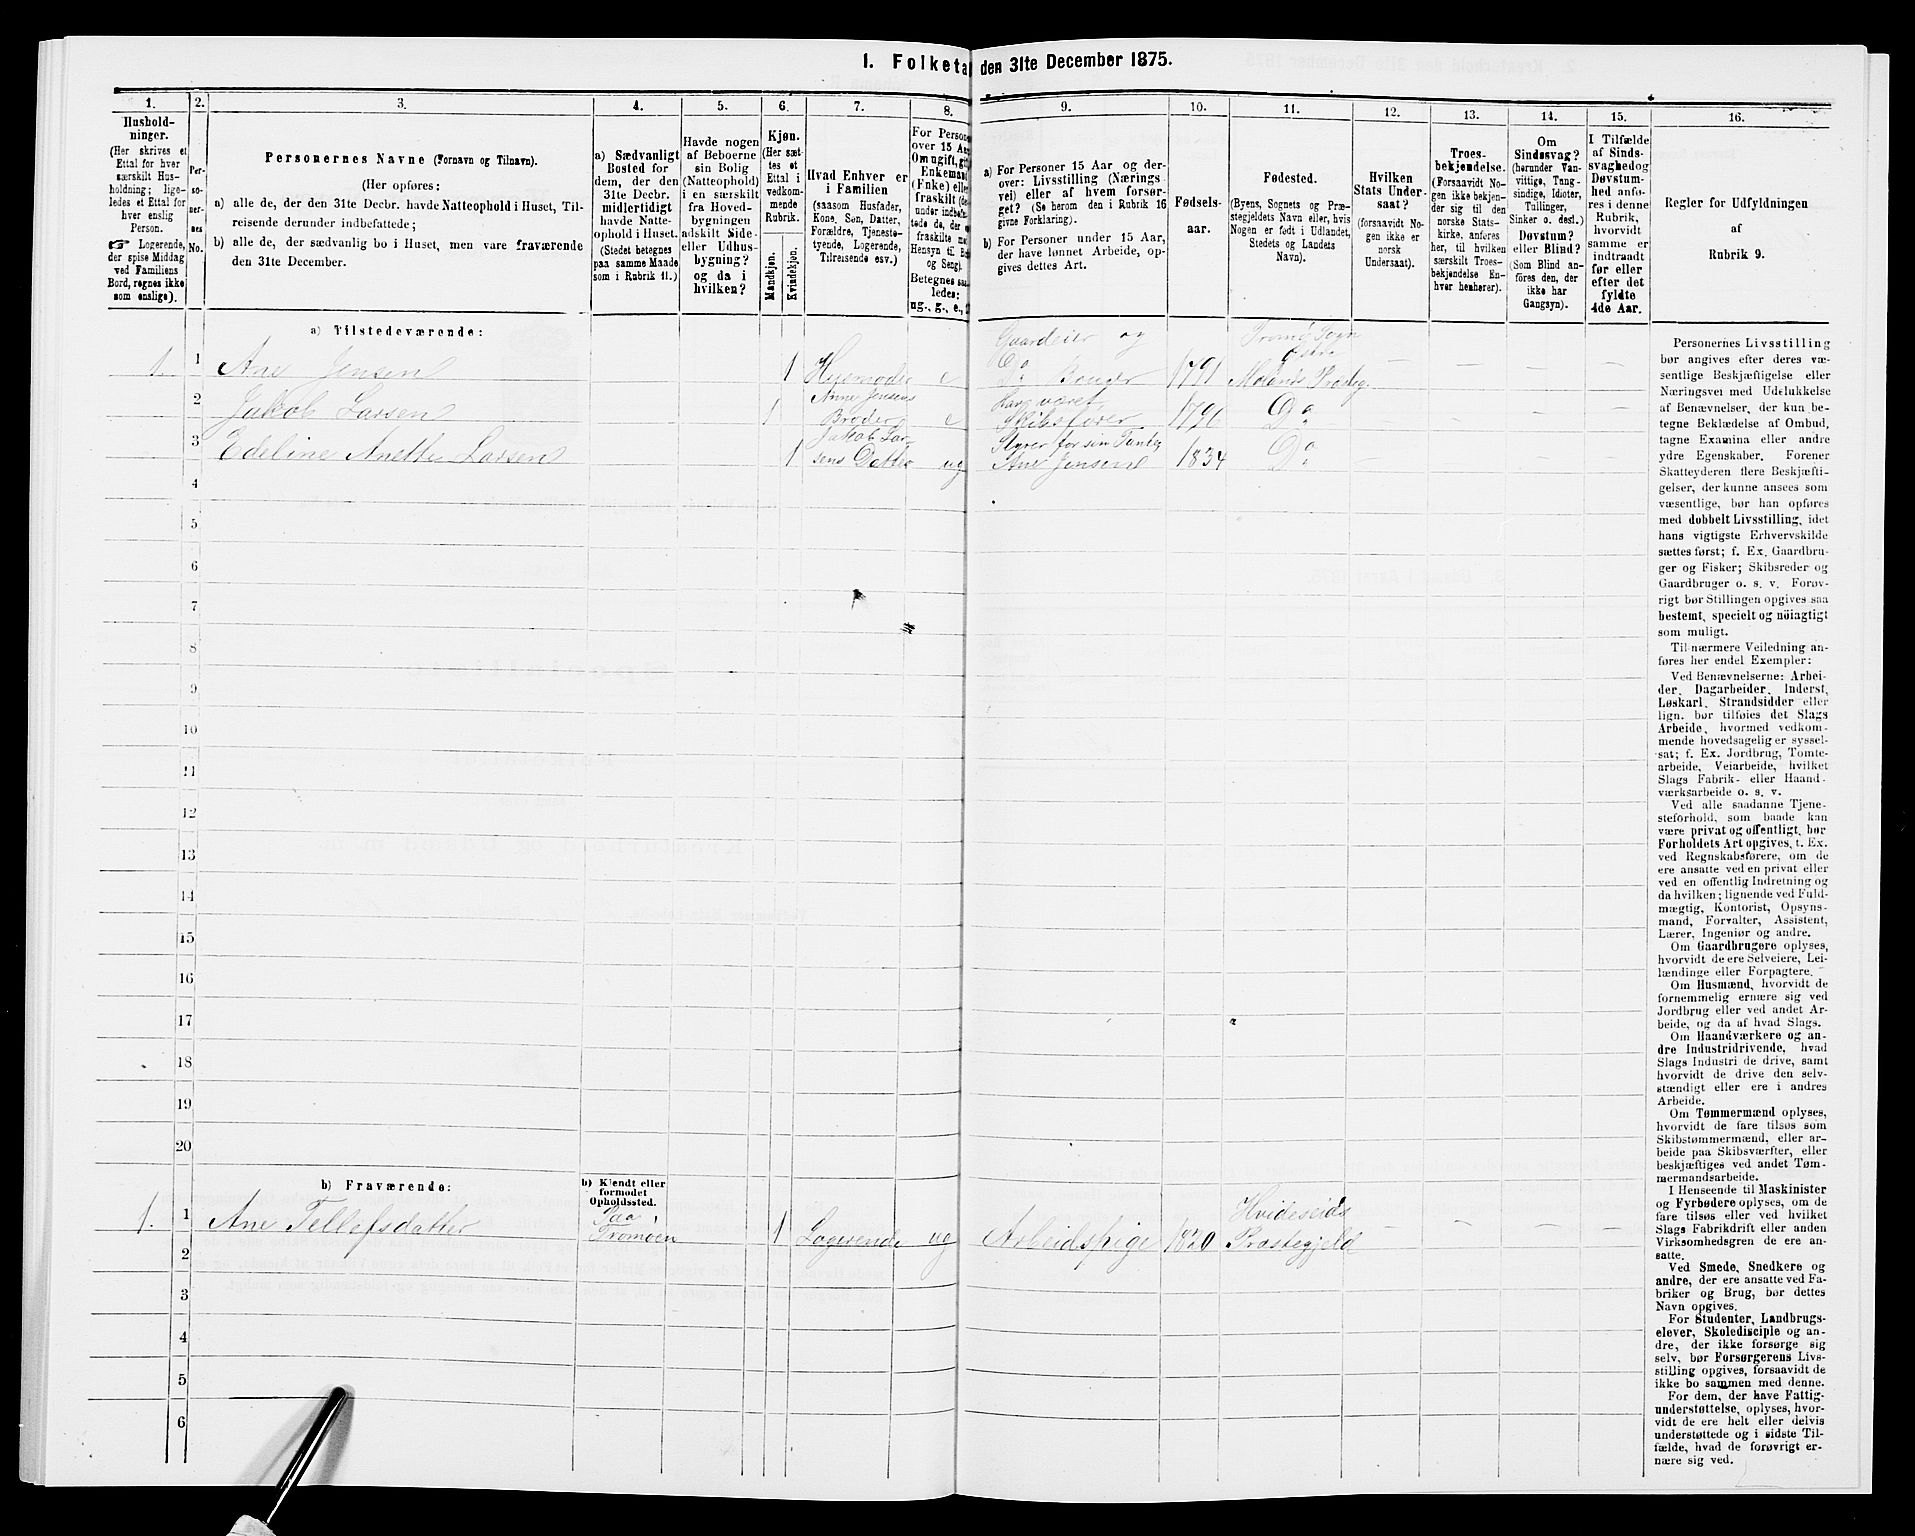 1. Folketal den 31te December 1875.
1. 2. 3. 4. 5. 6. 7. 8. 9. 10. 11. 12. 13. 14. 15. 16.
Hushold-
ninger.
(Her skrives et
Ettal for hver
særskilt Hus-
holdning; lige-
ledes et Ettal for
hver enslig
Person.
☞ Logerende,
der spise Middag
ved Familiens
Bord, regnes ikke
som enslige).
Per-
so-
ner-
nes
No.
Personernes Navne (Fornavn og Tilnavn).
(Her opføres:
a) alle de, der den 31te Decbr. havde Natteophold i Huset, Til-
reisende derunder indbefattede;
b) alle de, der sædvanlig bo i Huset, men vare fraværende
den 31te December.
a) Sædvanligt
Bosted for
dem, der den
31te Decbr.
midlertidigt
havde Natte-
ophold i Huset.
(Stedet betegnes
paa samme Maade
som i Rubrik 11.)
Havde nogen
af Beboerne
sin Bolig
(Natteophold)
i en særskilt
fra Hoved-
bygningen
adskilt Side-
eller Udhus-
bygning?
og da i
hvilken?
Kjøn.
(Her sæt-
tes et
Ettal i
vedkom-
mende
Rubrik.
Mandkjøn.
Kvindekjøn.
Hvad Enhver er
i Familien
(saasom Husfader,
Kone, Søn, Datter,
Forældre, Tjeneste-
tyende, Logerende,
Tilreisende osv.)
For Person
over 15 Aa
Om ugift, gi
Enkemand
(Enke) elle
fraskilt (de
under indbefa
tede de, der e
fraskilte m
Hensyn til Bo
og Seng).
Betegnes saa
ledes:
ug., g., e.,
a) For Personer 15 Aar og der-
over: Livsstilling (Nærings-
vei) eller af hvem forsør-
get? (Se herom den i Rubrik 16
givne Forklaring).
b) For Personer under 15 Aar,
der have lønnet Arbeide, op-
gives dettes Art.
Fødsels-
aar.
Fødested.
(Byens, Sognets og Præ-
stegjeldets Navn eller, hvis
Nogen er født i Udlandet,
Stedets og Landets
Navn).
Hvilken
Stats Under-
saat?
(forsaavidt No-
gen ikke er
norsk
Undersaat).
Troes-
bekjendelse.
(Forsaavidt No-
gen ikke bekjen-
der sig til den
norske Stats-
kirke, anføres
her, til hvilken
særskilt Troes-
bekjendelse En-
hver henhører).
Om
Sindssvag?
(herunder Van-
vittige, Tung-
sindige, Idioter,
Tullinger,
Sinker o. desl.)
Døvstum?
eller Blind?
(Som Blind an-
føres den, der
ikke har
Gangsyn).
I Tilfælde
af Sinds-
svaghed og
Døvstum-
hed anfø-
res i denne
Rubrik,
hvorvidt
samme er
indtraadt
før eller
efter det
fyldte
4de Aar.
Regler for Udfyldningen
af
Rubrik 9.
a) Tilstedeværende:
1. 1 Ane Jensen 1 Husmoder e Gaardeier og Do Bruger 1791 Tromø Sogn Østre Molands Præsteg. — — — —
2 Jakob Larsen 1 Anne Jensens Broder e Har været Skibsfører 1796 Do — — — —
3 Edeline Anette Larsen 1 Jakob Larsens Datter ug Styrer for sin Tante Ane Jensen 1834 Do — — — —
4
5
6
7
8
9
10
11
12
13
14
15
16
17
18
19
20
b) Fraværende:
b) Kjendt eller
formodet
Opholdssted.
1. 1 Ane Tellefsdatter Paa Tromøen 1 Logerende ug Arbeidspige 1820 Hvideseids Præstegjeld — — — —
2
3
4
5
6
Personernes Livsstilling
bør angives efter deres væ-
sentlige Beskjæftigelse eller
Næringsvei med Udelukkelse
af Benævnelser, der kun be-
tegne Beklædelse af Ombud,
tagne Examina eller andre
ydre Egenskaber. Forener
Skatteyderen flere Beskjæfti-
gelser, der kunne ansees som
væsentlige, bør han opføres
med dobbelt Livsstilling, idet
hans vigtigste Erhvervskilde
sættes først; f. Ex. Gaardbru-
ger og Fisker; Skibsreder og
Gaardbruger o. s. v. Forøv-
rigt bør Stillingen opgives saa
bestemt, specielt og nöiagtigt
som muligt.
Til nærmere Veiledning an-
føres her endel Exempler:
Ved Benævnelserne: Arbei-
der, Dagarbeider, Inderst,
Løskarl, Strandsidder eller
lign. bør tilføies det Slags
Arbeide, hvormed vedkom-
mende hovedsagelig er syssel-
sat; f. Ex. Jordbrug, Tomte-
arbeide, Veiarbeide, hvilket
Slags Fabrik- eller Haand-
værksarbeide o. s. v.
Ved alle saadanne Tjene-
steforhold, som baade kan
være privat og offentligt, bør
Forholdets Art opgives, t. Ex.
ved Regnskabsførere, om de
ere ansatte ved en privat eller
ved en offentlig Indretning og
da hvilken; lignende ved Fuld-
mægtig, Kontorist, Opsyns-
mand, Forvalter, Assistent,
Lærer, Ingeniør og andre.
Om Gaardbrugere oplyses,
hvorvidt de ere Selveiere, Lei-
lændinge eller Forpagtere.
Om Husmænd, hvorvidt de
fornemmelig ernære sig ved
Jordbrug eller ved andet Ar-
beide, og da af hvad Slags.
Om Haandværkere og an-
dre Industridrivende, hvad
Slags Industri de drive, samt
hvorvidt de drive den selv-
stændigt eller ere i andres
Arbeide.
Om Tømmermænd oplyses,
hvorvidt de fare tilsøs som
Skibstømmermænd, eller ar-
beide paa Skibsværfter, eller
beskjæftiges ved andet Tøm-
mermandsarbeide.
I Henseende til Maskinister
og Fyrbødere oplyses, om de
fare tilsøs eller ved hvilket
Slags Fabrikdrift eller anden
Virksomhedsgren de ere an-
satte.
Ved Smede, Snedkere og
andre, der ere ansatte ved Fa-
briker og Brug, bør dettes
Navn opgives.
For Studenter, Landbrugs-
elever, Skoledisciple og an-
dre, der ikke forsørge sig
selv, bør Forsørgerens Livs-
stilling opgives, forsaavidt de
ikke bo sammen med denne.
For dem, der have Fattig-
understøttelse, oplyses, hvor-
vidt de ere helt eller delvis
understøttede og i sidste Til-
fælde, hvad de forøvrigt er-
nære sig ved.